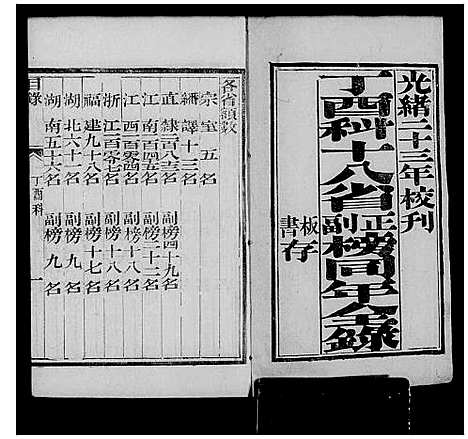 光緒二十三年校刊
丁酉科十八省正副榜同年全錄
書板存
各省額數
宗室五名
繙譯十三名
直隸二百八名 副榜四十九名
江南一百四五名 副榜二十二名
江西一百零四名 副榜十八名
浙江一百零七名 副榜十八名
福建九十八名 副榜十七名
湖北六十一名 副榜九名
湖南五十六名 副榜九名
目錄 丁酉科 一